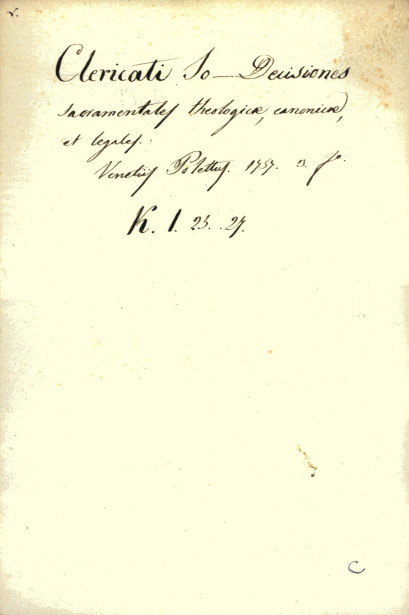 v.
Clericati Jo — Decisiones
sacramentales theologicæ, canonicæ,
et legales.
Venetiis Polettus. 1757. 3. fo.
K. 1. 25. 27.
C